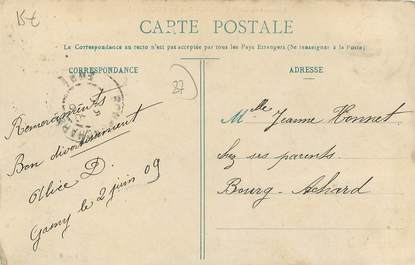 15€
CARTE POSTALE
La Correspondance au recto n'est pas acceptée par tous les Pays Etrangers (Se renseigner à la Poste)
CORRESPONDANCE
ADRESSE
27
Remerciements
Bon divertissement
Alice D.
Gasny le 2 juin 09
Mlle Jeanne Honnet
chez ses parents
Bourg-Achard